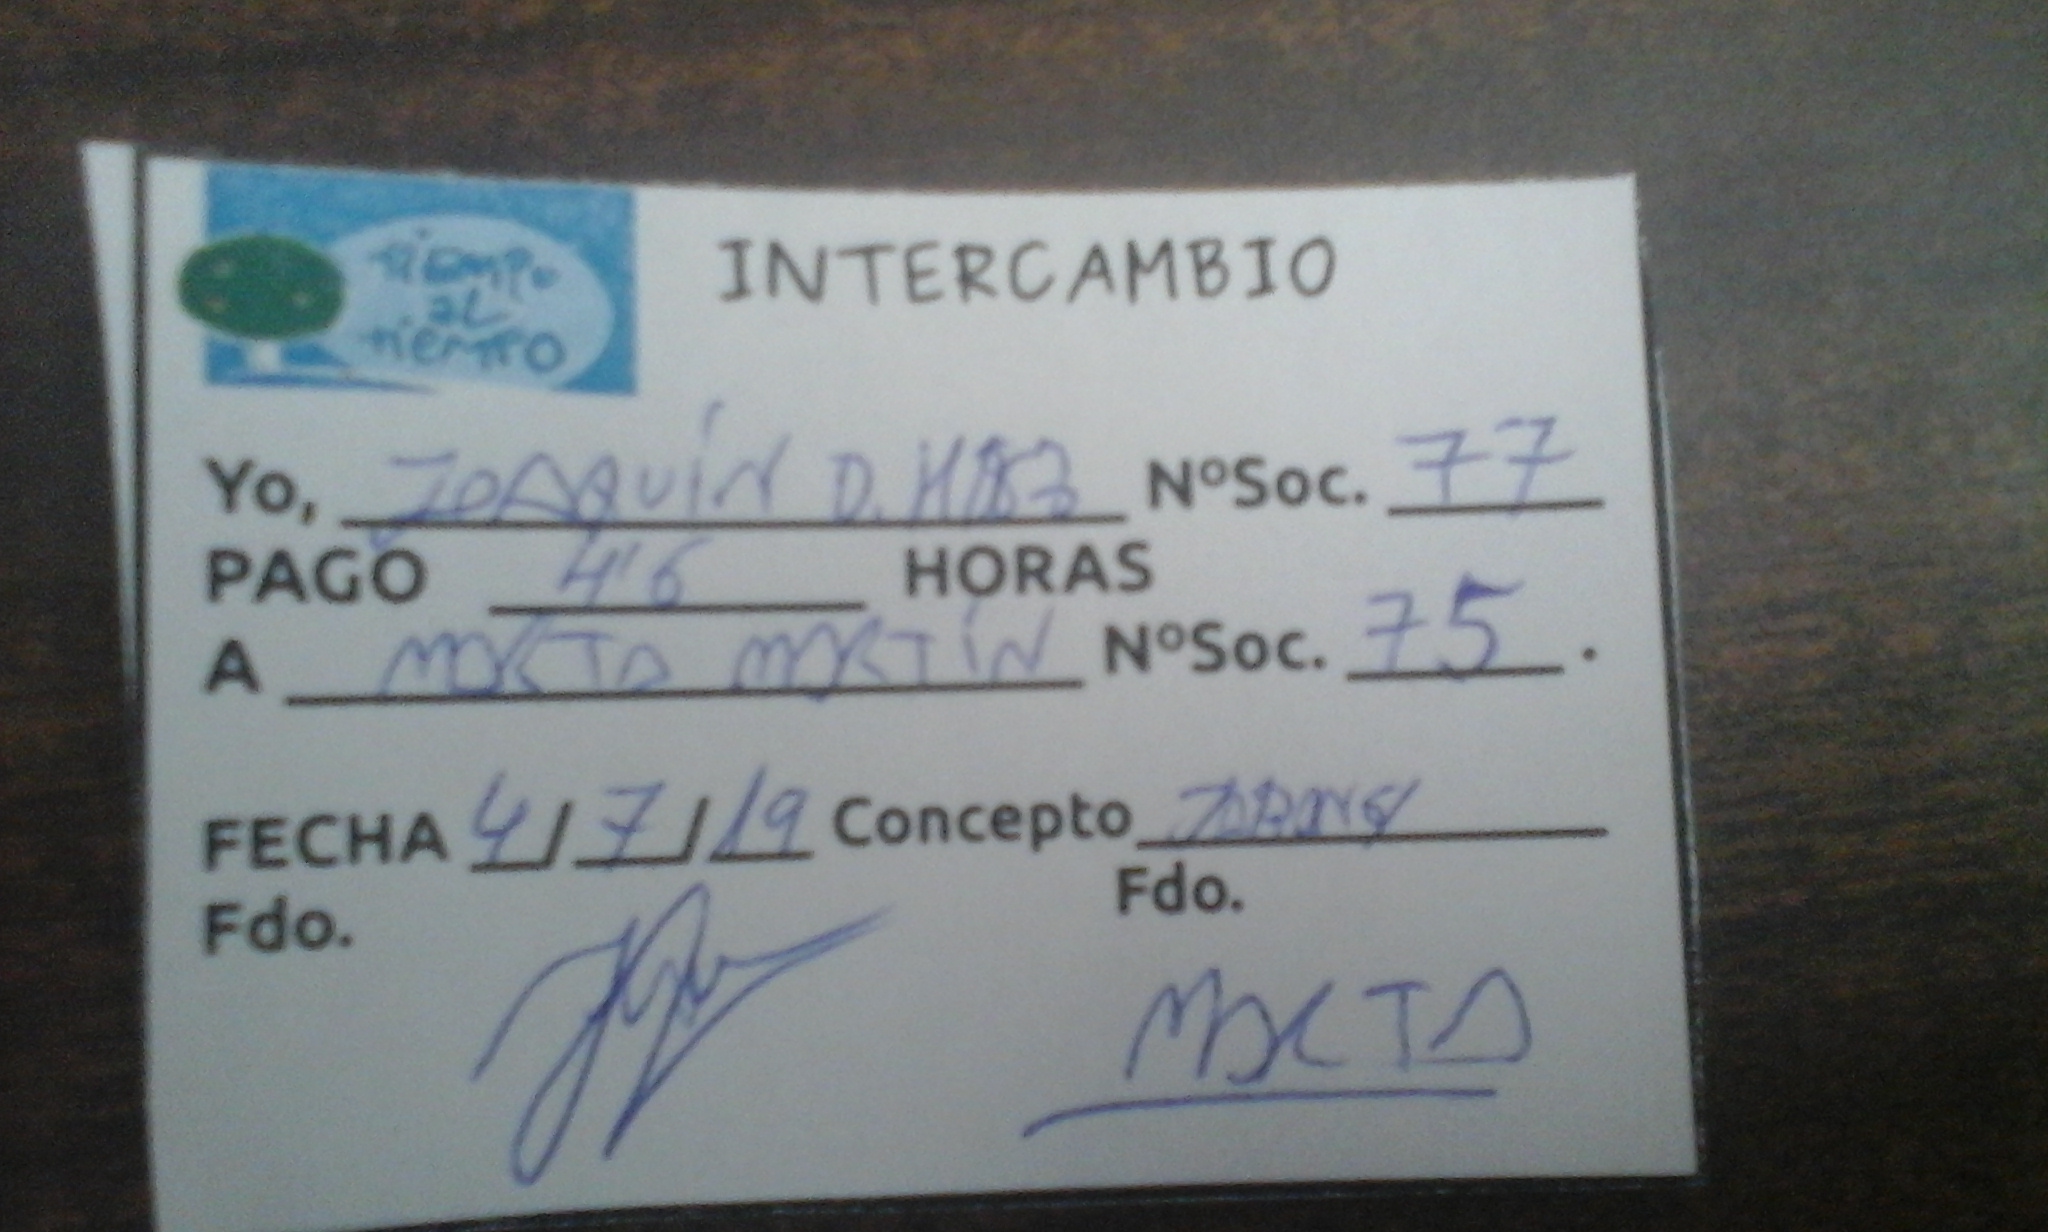 TIEMPO
AL
TIEMPO
INTERCAMBIO
Yo, JOAQUÍN D. NºSoc. 77
PAGO 4'6 HORAS
A MARTA MARTÍN NºSoc. 75.
FECHA 4/7/19 Concepto
Fdo. Fdo.
MARTA